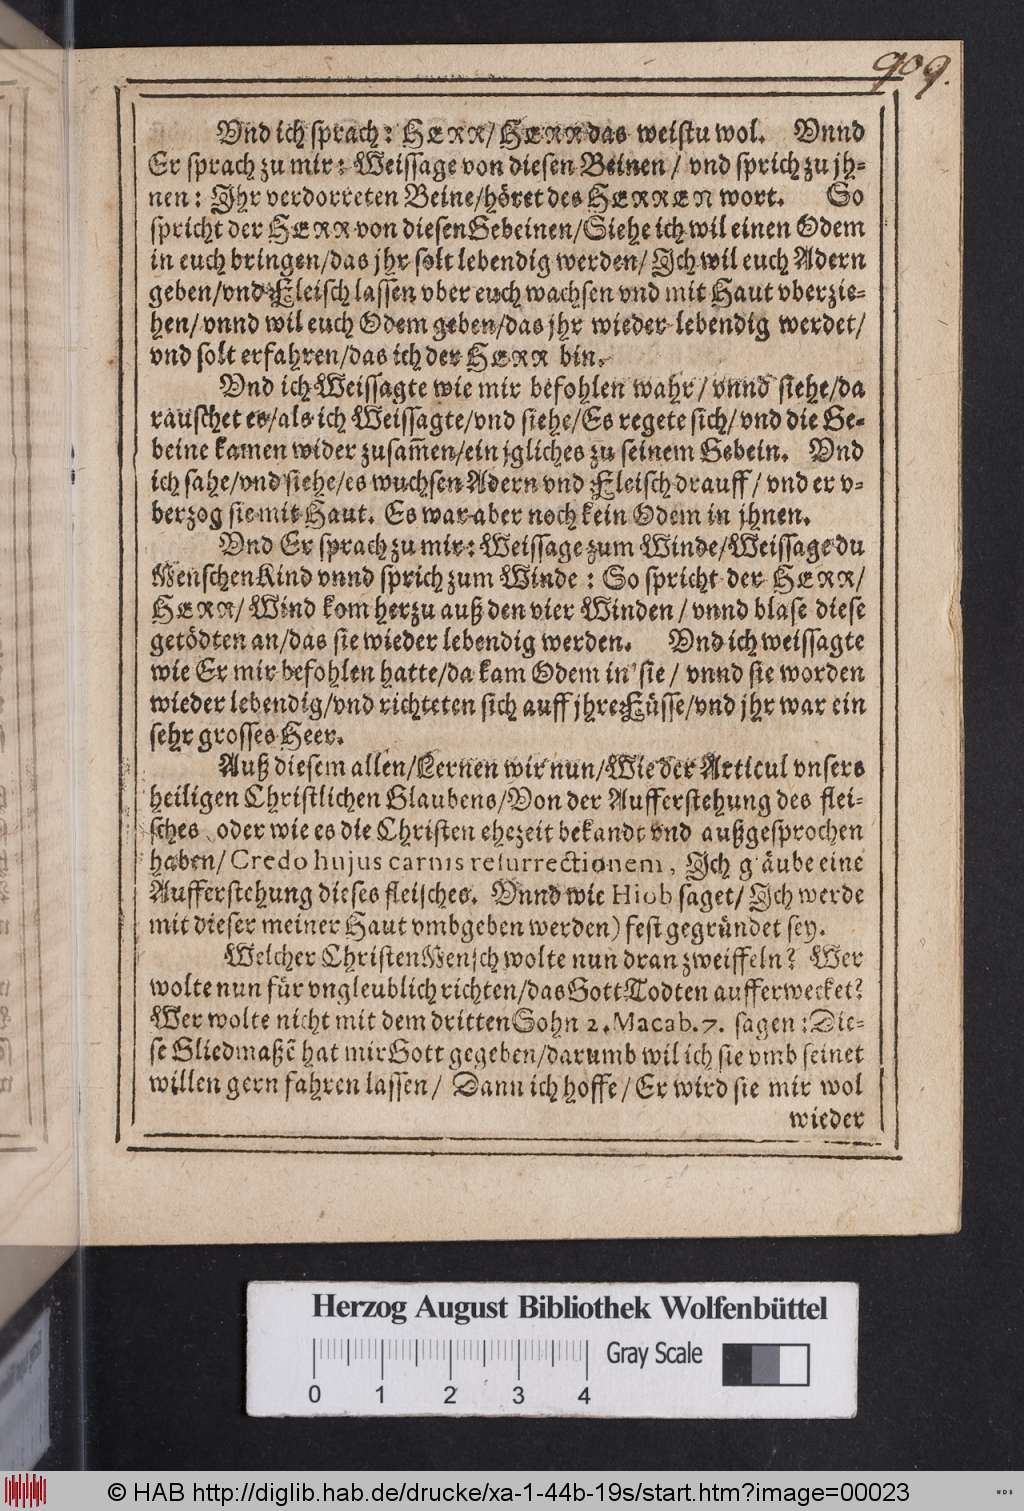 909.
Vnd ich sprach: HERR/HERR das weistu wol. Vnnd
Er sprach zu mir: Weissage von diesen Beinen / vnd sprich zu jh-
nen: Ihr verdorreten Beine/höret des HERREN wort. So
spricht der HERR von diesen Gebeinen/Siehe ich wil einen Odem
in euch bringen/das jhr solt lebendig werden/ Ich wil euch Adern
geben/vnd Fleisch lassen vber euch wachsen vnd mit Haut vberzie-
hen/ vnnd wil euch Odem geben/das jhr wieder lebendig werdet/
vnd solt erfahren/das ich der HERR bin.
Vnd ich Weissagte wie mir befohlen wahr/ vnnd siehe/da
rauschet es/als ich Weissagte/vnd siehe/Es regete sich/ vnd die Ge-
beine kamen wider zusam̃en/ein jgliches zu seinem Gebein. Vnd
ich sahe/vnd siehe/es wuchsen Adern vnd Fleisch drauff/ vnd er v-
berzog sie mit Haut. Es war aber noch kein Odem in jhnen.
Vnd Er sprach zu mir: Weissage zum Winde/Weissage du
MenschenKind vnnd sprich zum Winde : So spricht der HERR/
HERR/ Wind kom herzu auß den vier Winden / vnnd blase diese
getödten an/das sie wieder lebendig werden. Vnd ich weissagte
wie Er mir befohlen hatte/da kam Odem in sie/ vnnd sie worden
wieder lebendig/vnd richteten sich auff jhre Füsse/vnd jhr war ein
sehr grosses Heer.
Auß diesem allen/Lernen wir nun/Wie der Articul vnsers
heiligen Christlichen Glaubens/Von der Aufferstehung des flei-
sches oder wie es die Christen ehezeit bekandt vnd außgesprochen
haben/Credo hujus carnis resurrectionem, Ich gläube eine
Aufferstehung dieses fleisches. Vnnd wie Hiob saget/ Ich werde
mit dieser meiner Haut vmbgeben werden) fest gegründet sey.
Welcher ChristenMensch wolte nun dran zweiffeln? Wer
wolte nun für vngleublich richten/das Gott Todten aufferwecket?
Wer wolte nicht mit dem dritten Sohn 2. Macab. 7. sagen: Die-
se Gliedmaßẽ hat mir Gott gegeben/darumb wil ich sie vmb seinet
willen gern fahren lassen/ Dann ich hoffe/ Er wird sie mir wol
wieder
Herzog August Bibliothek Wolfenbüttel
Gray Scale
0 1 2 3 4
© HAB http://diglib.hab.de/drucke/xa-1-44b-19s/start.htm?image=00023